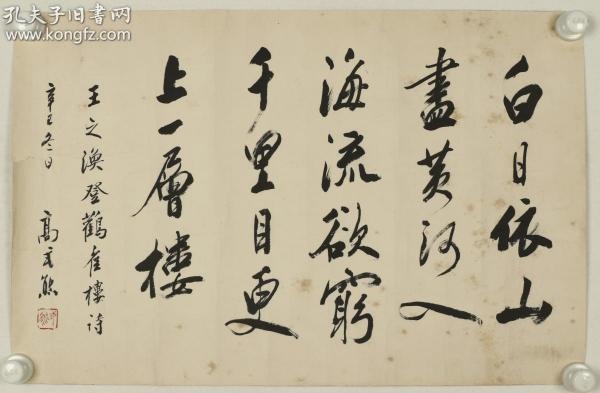 孔夫子旧书网
www.kongfz.com
白日依山
盡黄河入
海流欲窮
千里目更
上一層樓
王之渙登鸛雀樓诗
辛巳冬日 高式熊